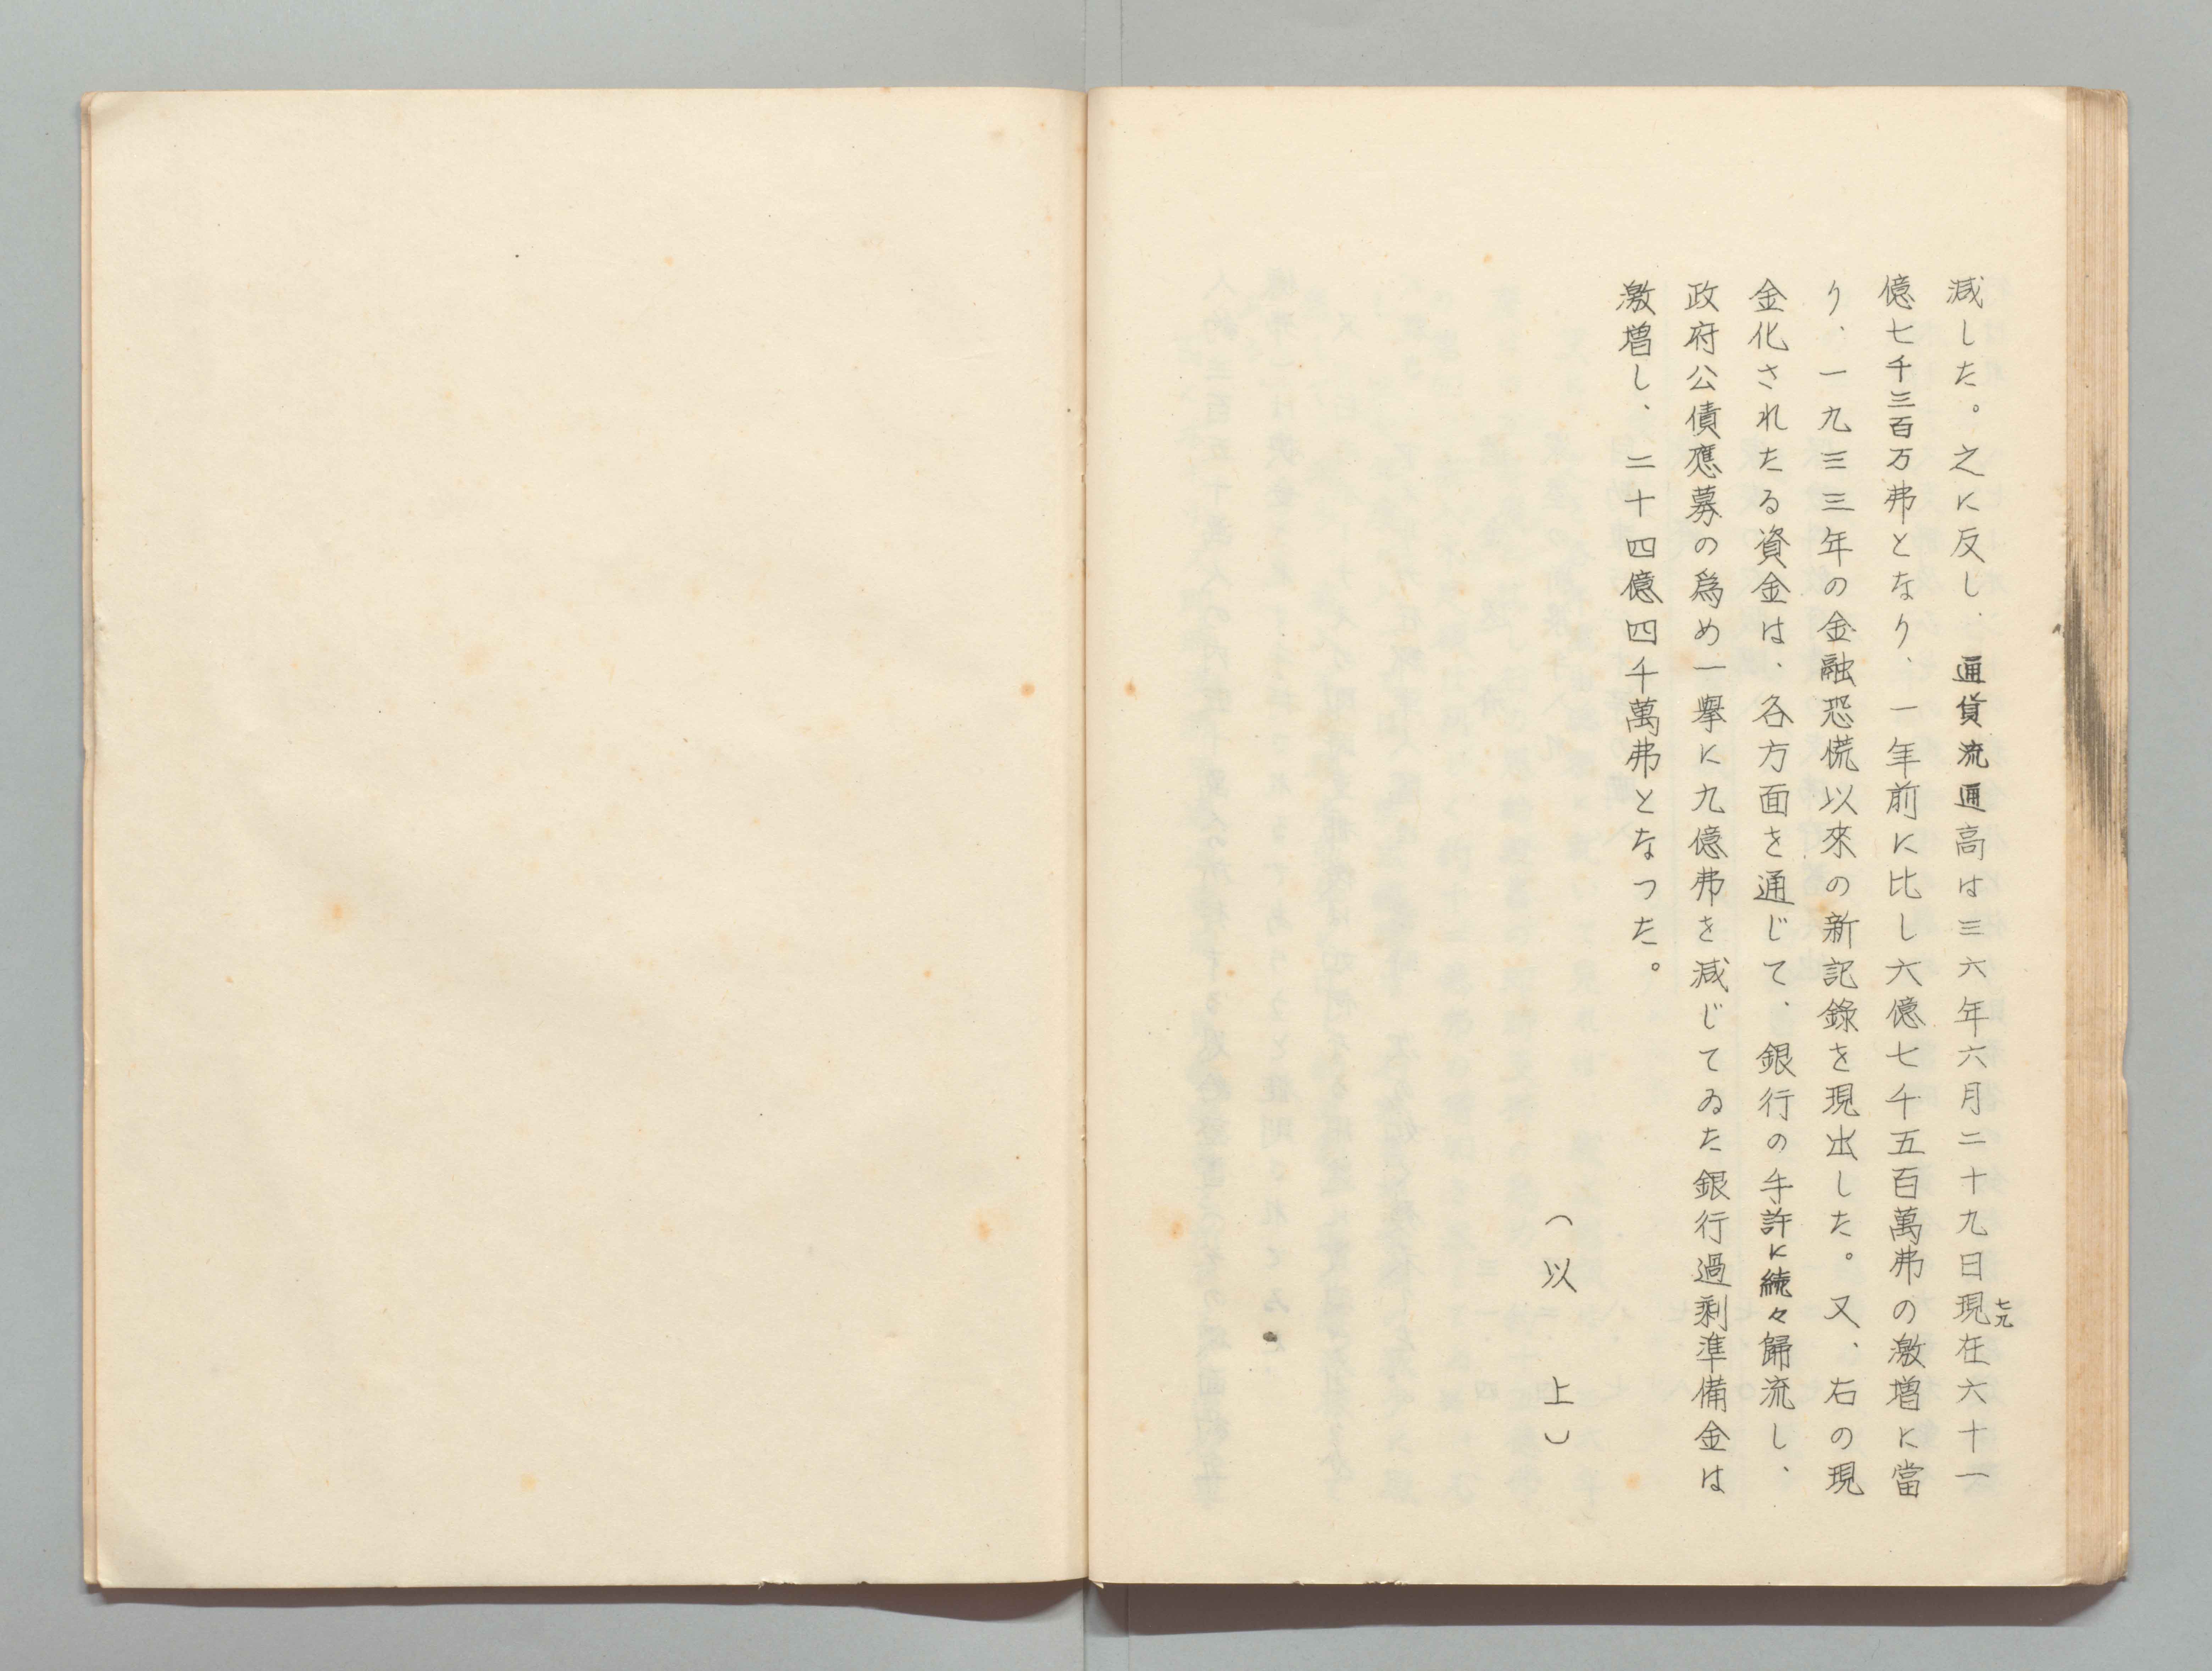 減した。之に反し、通貨流通高は三六年六月二十九日現在六十一
億七千三百万弗となり、一年前に比し六億七千五百萬弗の激増に當
り、一九三三年の金融恐慌以來の新記錄を現出した。又、右の現
金化されたる資金は、各方面を通じて、銀行の手許に続々歸流し、
政府公債應募の爲め一擧に九億弗を減じてゐた銀行過剩準備金は
激増し、二十四億四千萬弗となつた。
（以上）
七九